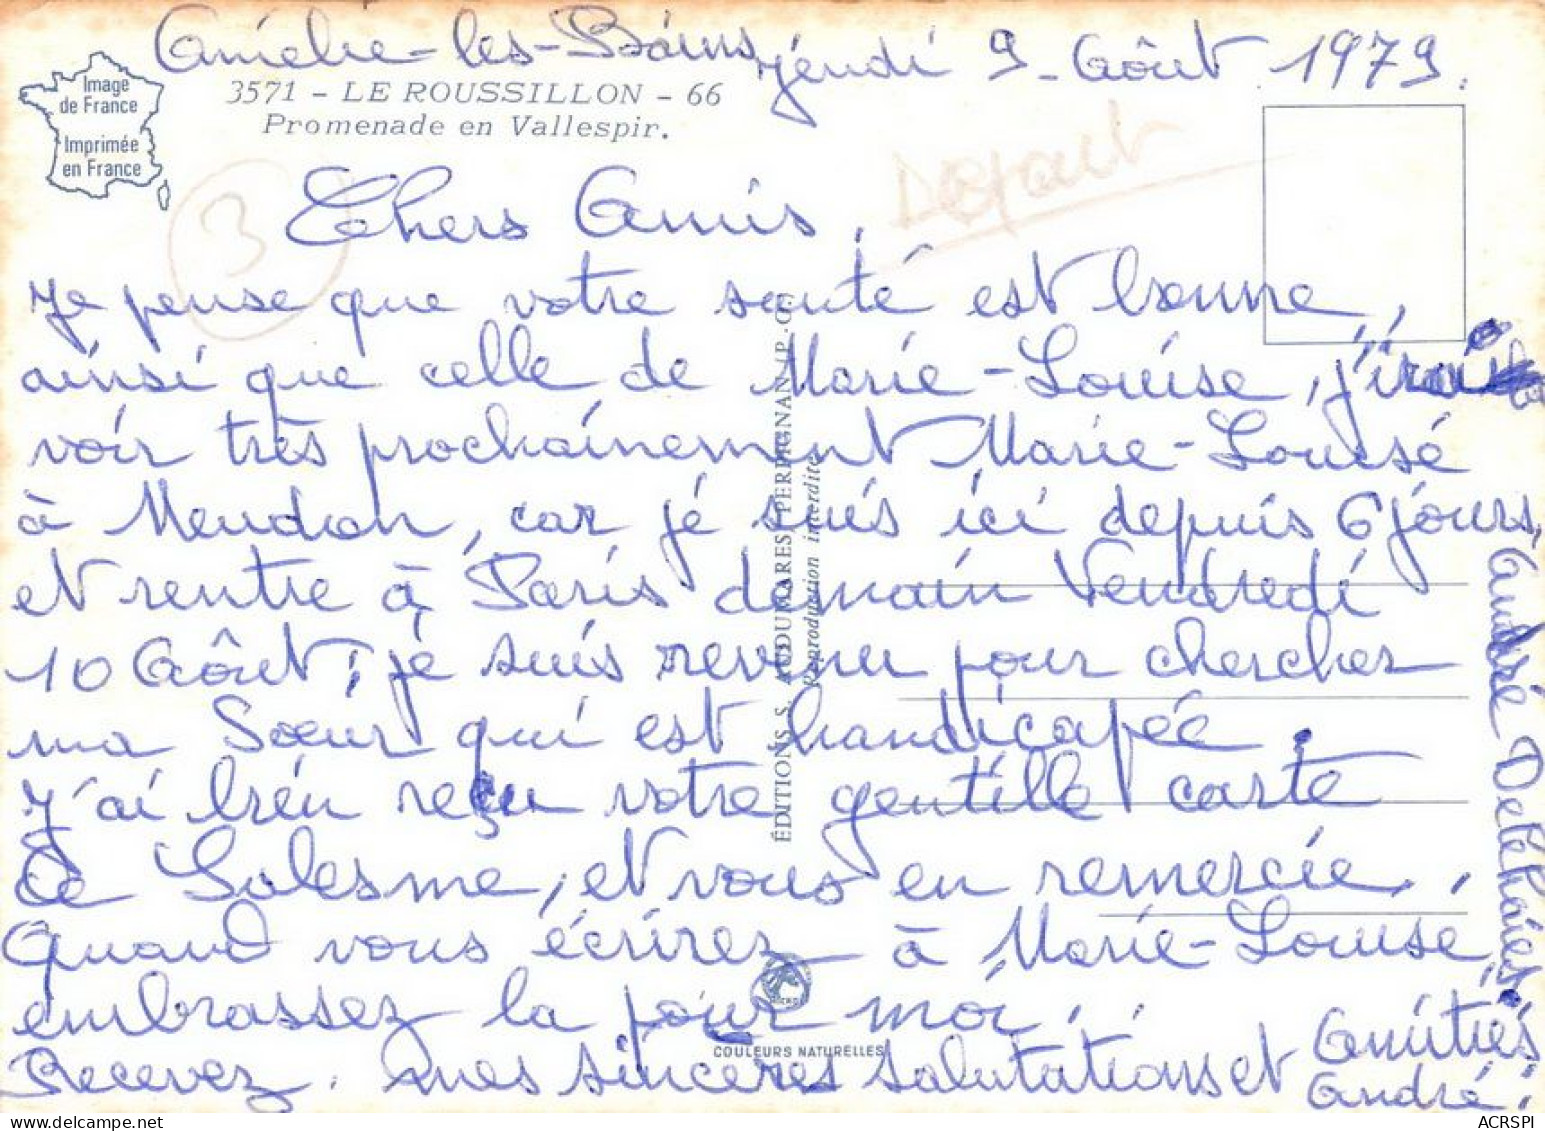 Amélie-les-Bains, jeudi 9 Août 1979.
Image
de France
Imprimée
en France
3571 - LE ROUSSILLON - 66
Promenade en Vallespir.
3
Defaut
Chers Amis,
Je pense que votre santé est bonne,
ainsi que celle de Marie-Louise, j'irai
voir très prochainement Marie-Louise
à Meudon, car je suis ici depuis 6 jours,
et rentre à Paris demain Vendredi
10 Août, je suis revenu pour chercher
ma Soeur qui est handicapée.
J'ai bien reçu votre gentille carte
de Solesme, et vous en remercie,
Quand vous écrirez à Marie-Louise
embrassez la pour moi,
Recevez mes sincères salutations et Amitiés
André.
André Delehaies
ÉDITIONS S. AUDUMARES PERPIGNAN
Reproduction interdite
COULEURS NATURELLES
ACRSPI